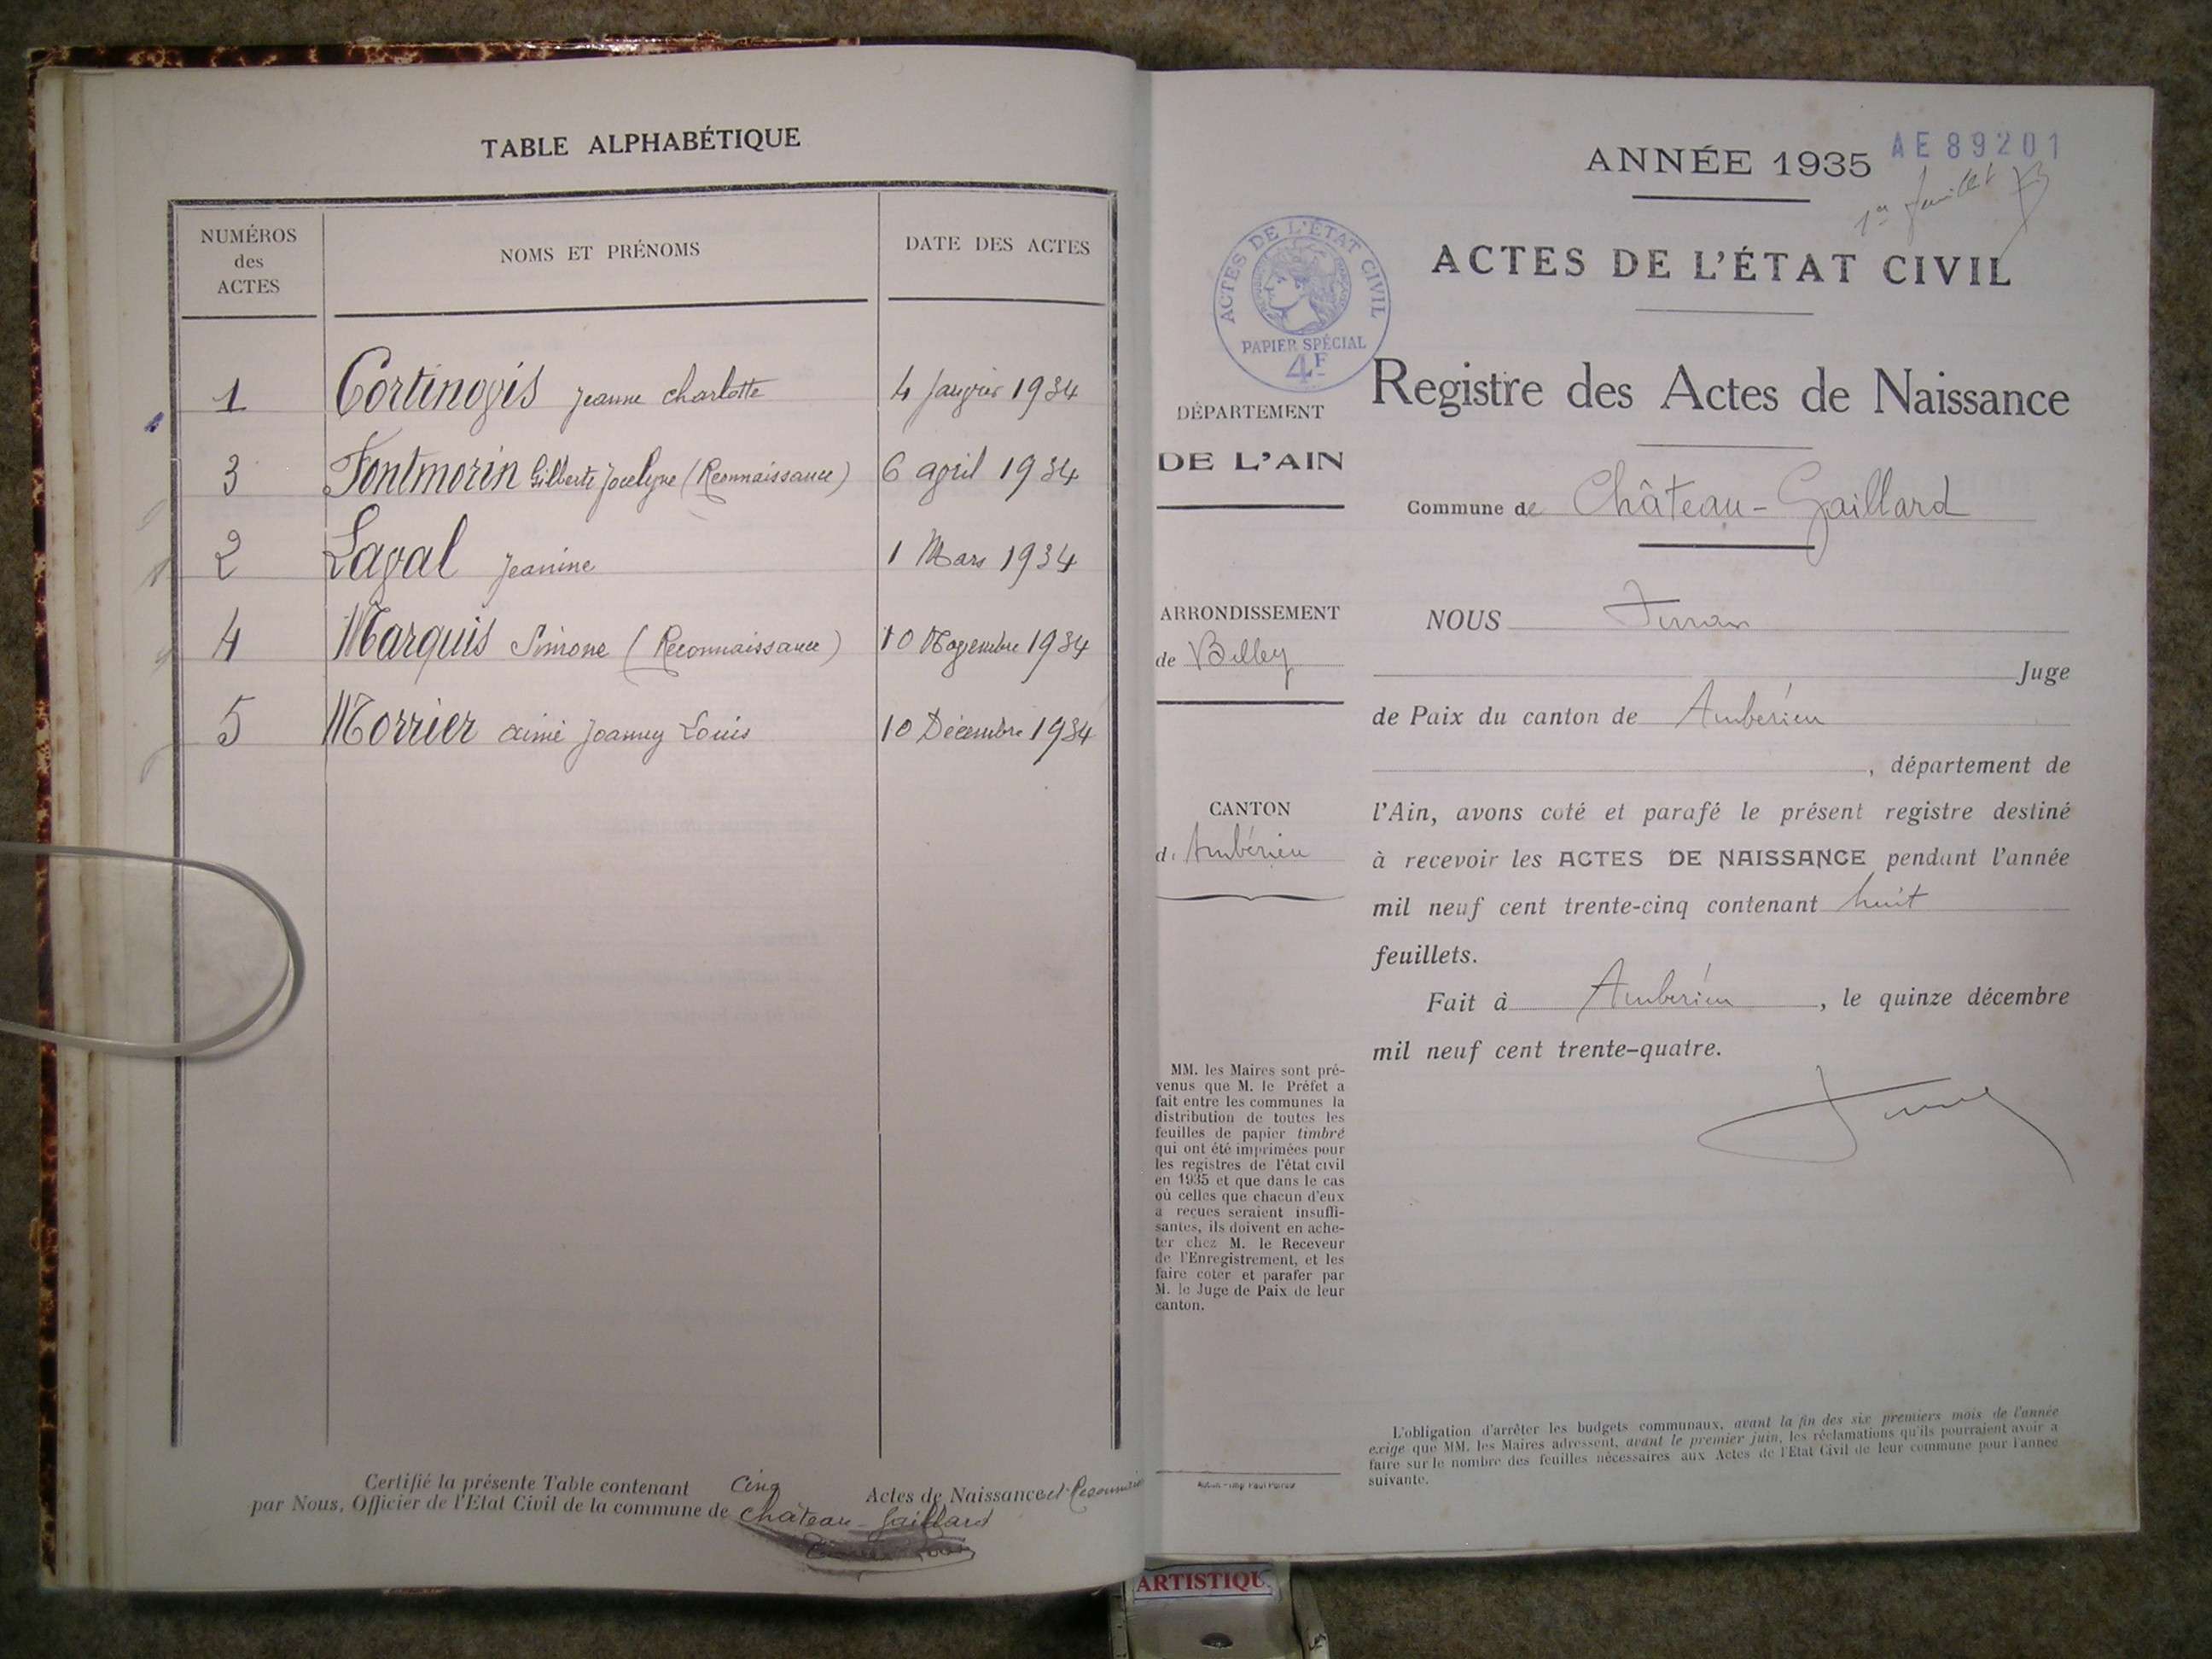 TABLE ALPHABÉTIQUE
NUMÉROS des ACTES
NOMS ET PRÉNOMS
DATE DES ACTES
1 Cortinovis Jeanne Charlotte 4 Janvier 1934
3 Fontmorin Gilberte Jocelyne (Reconnaissance) 6 avril 1934
2 Laval Jeanine 1 Mars 1934
4 Marquis Simone (Reconnaissance) 10 Novembre 1934
5 Morrier Aimé Joanny Louis 10 Décembre 1934
Certifié la présente Table contenant Cinq Actes de Naissance et
par Nous, Officier de l'Etat Civil de la commune de Château-Gaillard
ANNÉE 1935
AE 89201
1er feuillet
ACTES DE L'ÉTAT CIVIL
ACTES DE L'ÉTAT CIVIL
PAPIER SPÉCIAL
4F
Registre des Actes de Naissance
DÉPARTEMENT
DE L'AIN
Commune de Château-Gaillard
ARRONDISSEMENT
de Belley
CANTON
d' Ambérieu
NOUS
Juge
de Paix du canton de Ambérieu
, département de
l'Ain, avons coté et parafé le présent registre destiné
à recevoir les ACTES DE NAISSANCE pendant l'année
mil neuf cent trente-cinq contenant huit
feuillets.
Fait à Ambérieu, le quinze décembre
mil neuf cent trente-quatre.
MM. les Maires sont pré-
venus que M. le Préfet a
fait entre les communes la
distribution de toutes les
feuilles de papier timbré
qui ont été imprimées pour
les registres de l'état civil
en 1935 et que dans le cas
où celles que chacun d'eux
a reçues seraient insuffi-
santes, ils doivent en ache-
ter chez M. le Receveur
de l'Enregistrement, et les
faire coter et parafer par
M. le Juge de Paix de leur
canton.
L'obligation d'arrêter les budgets communaux, avant la fin des six premiers mois de l'année
exige que MM. les Maires adressent, avant le premier juin, les réclamations qu'ils pourraient avoir à
faire sur le nombre des feuilles nécessaires aux Actes de l'Etat Civil de leur commune pour l'année
suivante.
ARTISTIQU